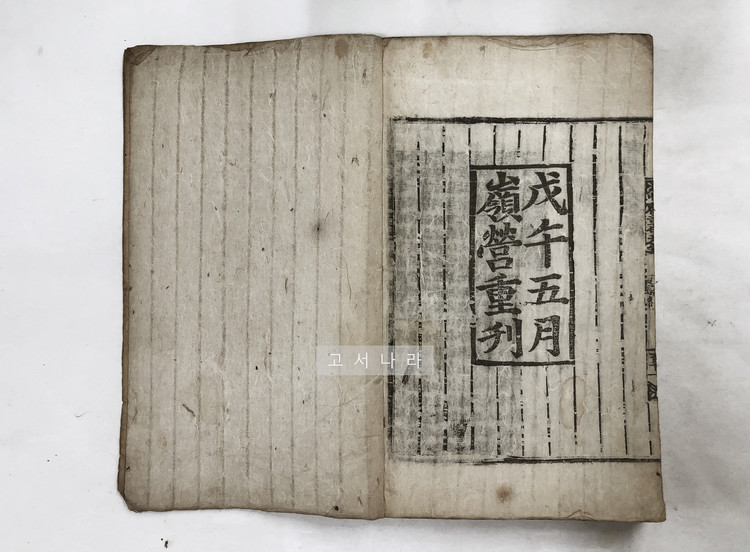 戊午五月
嶺營重刊
고서나라